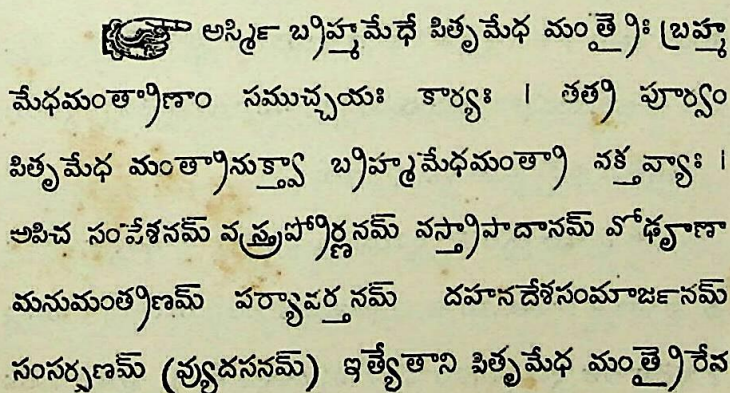 అస్మిన్ బ్రహ్మమేధే పితృమేధ మంత్రైః బ్రహ్మ
మేధమంత్రాణాం సముచ్చయః కార్యః । తత్ర పూర్వం
పితృమేధ మంత్రానుక్త్వా బ్రహ్మమేధమంత్రా వక్తవ్యాః ।
అపిచ సంవేశనమ్ వస్త్రప్రోర్ణనమ్ వస్త్రాపాదానమ్ వోఢౄణా
మనుమంత్రణమ్ పర్యావర్తనమ్ దహనదేశసంమార్జనమ్
సంసర్పణమ్ (వ్యుదసనమ్) ఇత్యేతాని పితృమేధ మంత్రైరేవ